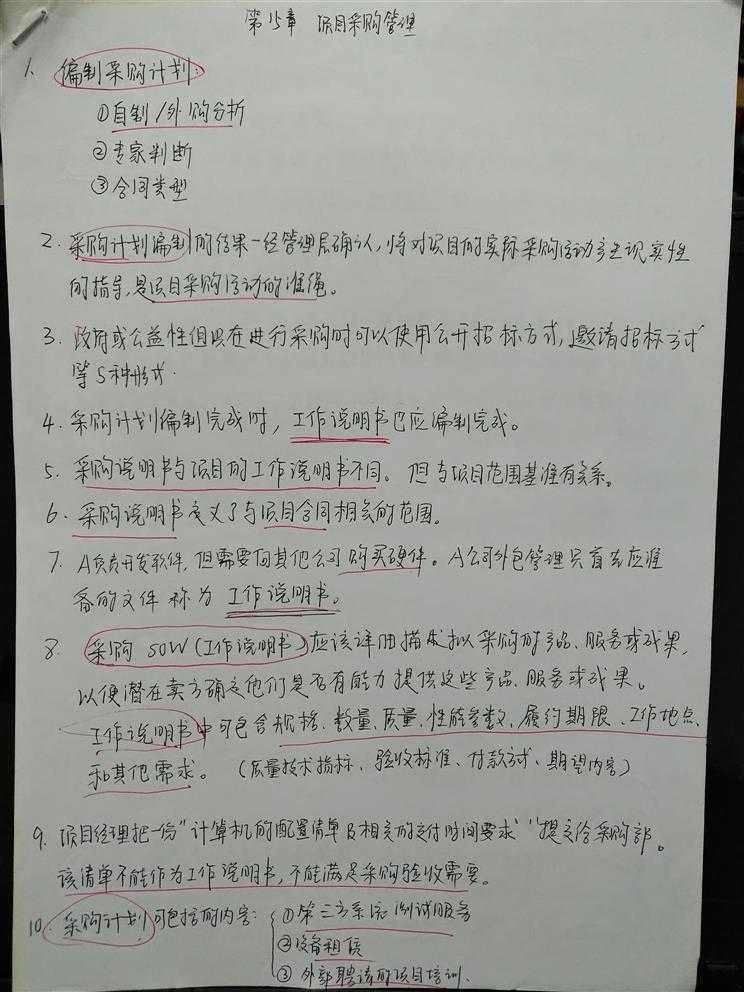 第15章 项目采购管理
1、编制采购计划:
①自制/外购分析
②专家判断
③合同类型
2. 采购计划编制的结果一经管理层确认,将对项目的实际采购活动产生现实性
的指导,是项目采购活动的准绳。
3. 政府或公益性组织在进行采购时可以使用公开招标方式,邀请招标方式
等5种形式.
4. 采购计划编制完成时,工作说明书已应编制完成。
5. 采购说明书与项目的工作说明书不同。但与项目范围基准有关系。
6. 采购说明书定义了与项目合同相关的范围。
7. A负责开发软件,但需要向其他公司购买硬件。A公司外包管理只首先应准
备的文件称为工作说明书。
8. 采购SOW(工作说明书)应该详细描述拟采购的产品、服务或成果,
以便潜在卖方确定他们是否有能力提供这些产品、服务或成果。
工作说明书中可包含规格、数量、质量、性能参数、履约期限、工作地点、
和其他需求。(质量技术指标、验收标准、付款方式、期望内容)
9. 项目经理把一份"计算机的配置清单及相关的交付时间要求"提交给采购部。
该清单不能作为工作说明书,不能满足采购验收需要。
10. 采购计划可包括的内容: ①第三方系统测试服务
②设备租赁
③外部聘请的项目培训.